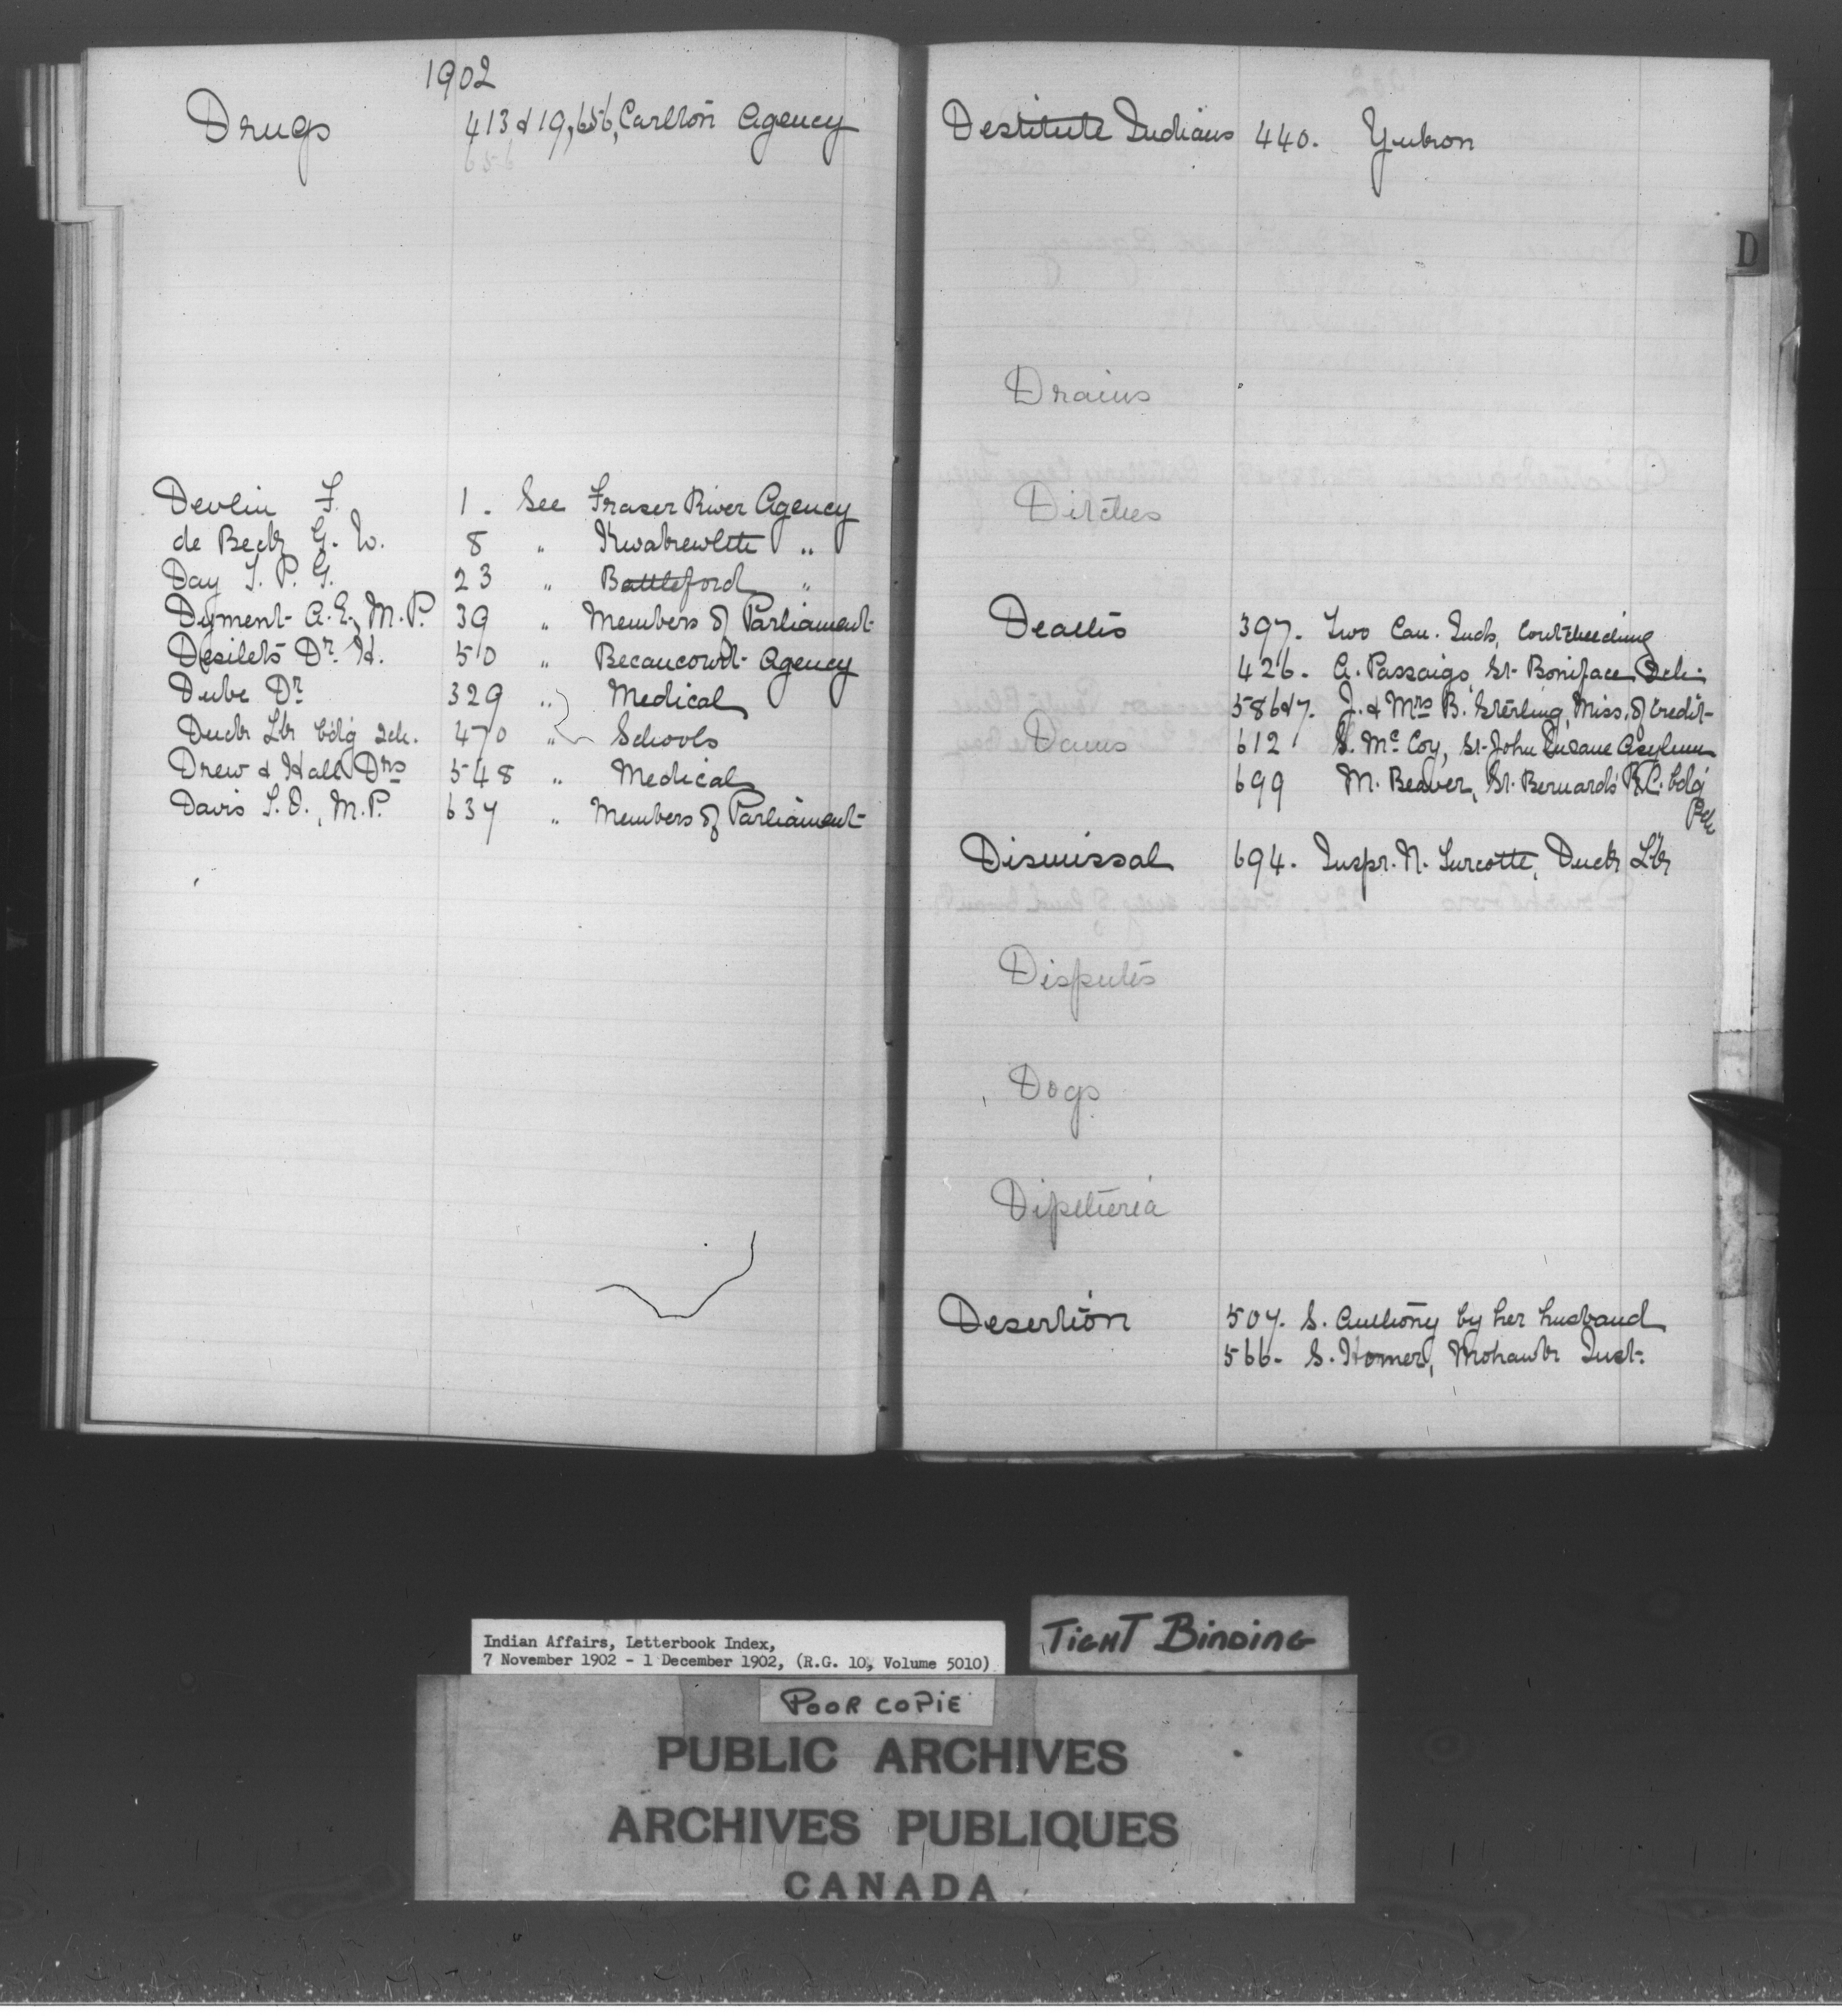 1902
Drugs 413 & 19, 656, Carlton Agency
656
Devlin F. 1. See Fraser River Agency
de Beck G. W. 8 " Kwakewlth "
Day J. P. G. 23 " Battleford "
Dyment A. E., M.P. 39 " Members of Parliament
Desilets Dr. H. 50 " Becancourt Agency
Dube Dr 329 " Medical
Duck Lk bdg Sch. 470 " Schools
Drew & Hall Drs 548 " Medical
Davis T. O., M.P. 637 " Members of Parliament
Destitute Indians 440. Yukon
D
Drains
Ditches
Deaths 397. Two Cau. Inds,
426. A. Passaigo, St. Boniface Sch.
586 & 7. J. & Mrs B. Sterling, Miss. of Credit
Dams 612 S. McCoy, St. John Insane Asylum
699 M. Beaver, St. Bernard's R.C. bdg
Dismissal 694. Inspr. N. Turcotte, Duck Lk
Disputes
Dogs
Diptheria
Desertion 507. S. Anthony by her husband
566. S. Homer, Mohawk Inst.
Indian Affairs, Letterbook Index,
7 November 1902 - 1 December 1902, (R.G. 10, Volume 5010)
TIGHT BINDING
POOR COPIE
PUBLIC ARCHIVES
ARCHIVES PUBLIQUES
CANADA